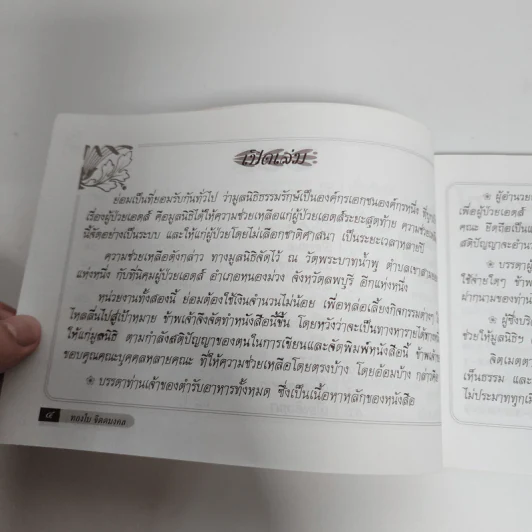 เปิดเล่ม
ย่อมเป็นที่ยอมรับกันทั่วไป ว่ามูลนิธิธรรมรักษ์เป็นองค์กรเอกชนองค์กรหนึ่ง
เรื่องผู้ป่วยเอดส์ คือมูลนิธิได้ให้ความช่วยเหลือแก่ผู้ป่วยเอดส์ระยะสุดท้าย
นี้จัดอย่างเป็นระบบ และให้แก่ผู้ป่วยโดยไม่เลือกชาติศาสนา เป็นระยะเวลาหลายปี
ความช่วยเหลือดังกล่าว ทางมูลนิธิจัดไว้ ณ วัดพระบาทน้ำพุ ตำบลเขาสาม
แห่งหนึ่ง กับที่นิคมผู้ป่วยเอดส์ อำเภอหนองม่วง จังหวัดลพบุรี อีกแห่งหนึ่ง
หน่วยงานทั้งสองนี้ ย่อมต้องใช้เงินจำนวนไม่น้อย เพื่อหล่อเลี้ยงกิจกรรมต่างๆ
ไหลลื่นไปสู่เป้าหมาย ข้าพเจ้าจึงจัดทำหนังสือนี้ขึ้น โดยหวังว่าจะเป็นทางหารายได้
ให้แก่มูลนิธิ ตามกำลังสติปัญญาของตนในการเขียนและจัดพิมพ์หนังสือนี้ ข้าพเจ้า
ขอบคุณคณะบุคคลหลายคณะ ที่ให้ความช่วยเหลือโดยตรงบ้าง โดยอ้อมบ้าง กล่าวคือ
❀ บรรดาท่านเจ้าของตำรับอาหารทั้งหมด ซึ่งเป็นเนื้อหาหลักของหนังสือ
๔ ทองใบ จิตตมงคล
❀ ผู้อำนวย
เพื่อผู้ป่วยเอดส์
คณะ
สติปัญญาจะอำนวย
❀ บรรดา
ใช้จ่ายใดๆ
ฝากนามของท่าน
❀ ผู้ซึ่ง
ช่วยให้มูลนิธิฯ
จิตเมตตา
เห็นธรรม และ
ไม่ประมาททุก